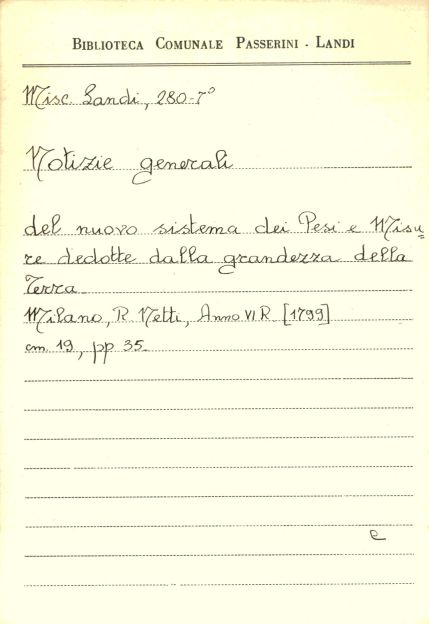 BIBLIOTECA COMUNALE PASSERINI - LANDI
Misc. Landi, 280-7°
Notizie generali
del nuovo sistema dei Pesi e Misu=
re dedotte dalla grandezza della
Terra
Milano, R. Netti, Anno VI R [1799]
cm. 19, pp 35.
e